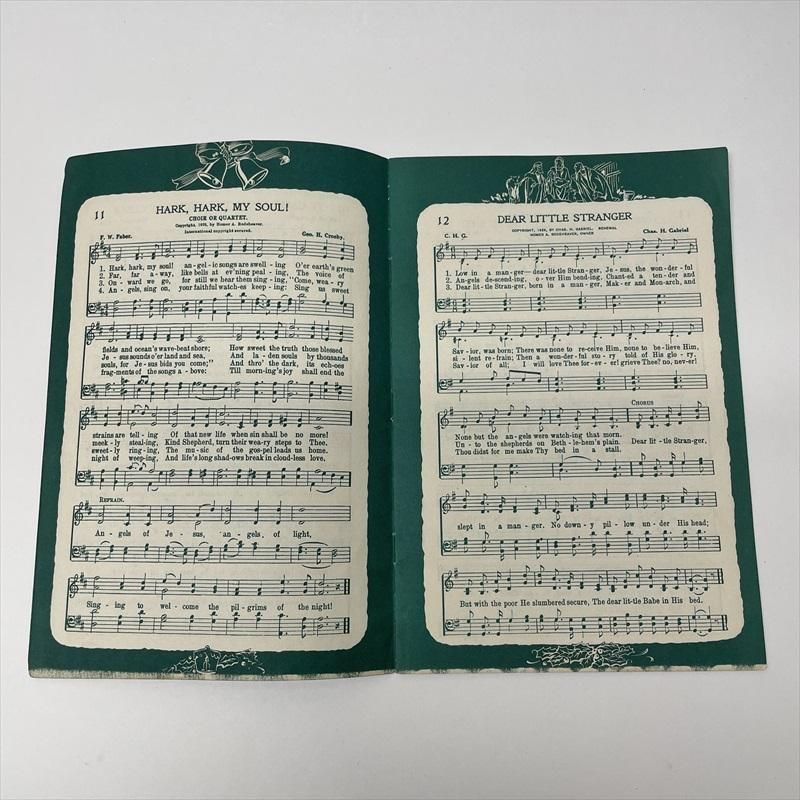 11
HARK, HARK, MY SOUL!
CHOIR OR QUARTET.
Copyright, 1925, by Homer A. Rodeheaver.
International copyright secured.
F. W. Faber. Geo. H. Crosby.
1. Hark, hark, my soul! an-gel-ic songs are swell-ing O'er earth's green
2. Far, far a-way, like bells at ev'ning peal-ing, The voice of
3. On-ward we go, for still we hear them sing-ing, "Come, wea-ry
4. An-gels, sing on, your faithful watch-es keep-ing: Sing us sweet
fields and ocean's wave-beat shore; How sweet the truth those blessed
Je-sus sounds o'er land and sea, And la-den souls by thousands
souls, for Je-sus bids you come;" And thro' the dark, its ech-oes
frag-ments of the songs a-bove: Till morn-ing's joy shall end the
strains are tell-ing Of that new life when sin shall be no more!
meek-ly steal-ing, Kind Shepherd, turn their wea-ry steps to Thee.
sweet-ly ring-ing, The mu-sic of the gos-pel leads us home.
night of weep-ing, And life's long shad-ows break in cloud-less love.
REFRAIN.
An-gels of Je-sus, an-gels of light,
Sing-ing to wel-come the pil-grims of the night!
12
DEAR LITTLE STRANGER
COPYRIGHT, 1928, BY CHAS. H. GABRIEL. RENEWAL
HOMER A. RODEHEAVER, OWNER
C. H. G. Chas. H. Gabriel
1. Low in a man-ger—dear lit-tle Stran-ger, Je-sus, the won-der-ful
2. An-gels de-scend-ing, o-ver Him bend-ing, Chant-ed a ten-der and
3. Dear lit-tle Stran-ger, born in a man-ger, Mak-er and Mon-arch, and
Sav-ior, was born; There was none to re-ceive Him, none to be-lieve Him,
si-lent re-frain; Then a won-der-ful sto-ry told of His glo-ry,
Sav-ior of all; I will love Thee for-ev-er! grieve Thee? no, nev-er!
CHORUS
None but the an-gels were watch-ing that morn.
Un-to the shepherds on Beth-le-hem's plain. Dear lit-tle Stran-ger,
Thou didst for me make Thy bed in a stall.
slept in a man-ger. No down-y pil-low un-der His head;
But with the poor He slumbered secure, The dear lit-tle Babe in His bed.